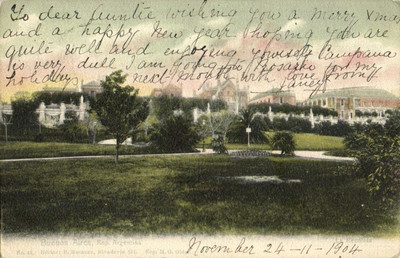 To dear auntie wishing you a merry Xmas
and a happy New year hoping you are
quite well and enjoying yourself Campana
is very dull I am going to Rosario for my
holidays next month with love from
Buenos Aires, Rep. Argentina
November 24-11-1904